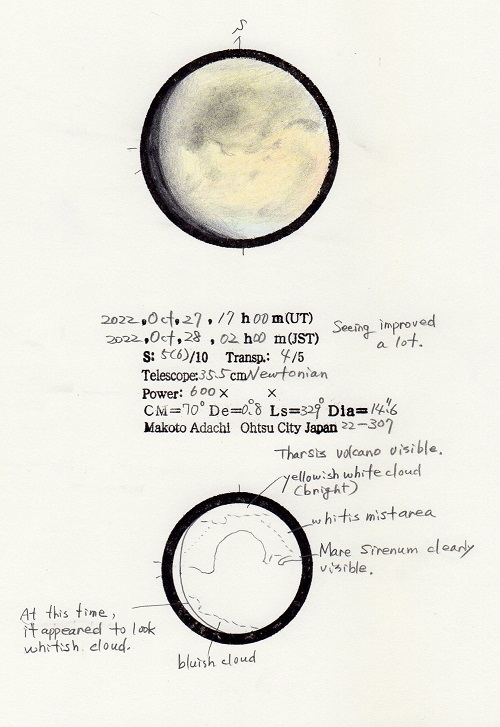 S
2022, Oct, 27, 17 h 00 m (UT)
2022, Oct, 28, 02 h 00 m (JST)
Seeing improved
a lot.
S: 5(6)/10 Transp.: 4/5
Telescope: 35.5 cm Newtonian
Power: 600 × ×
CM=70° De=0.°8 Ls=329° Dia=14."6
Makoto Adachi Ohtsu City Japan 22-307
Tharsis volcano visible.
yellowish white cloud
(bright)
whitis mist area
Mare Sirenum clearly
visible.
At this time,
it appeared to look
whitish cloud.
bluish cloud